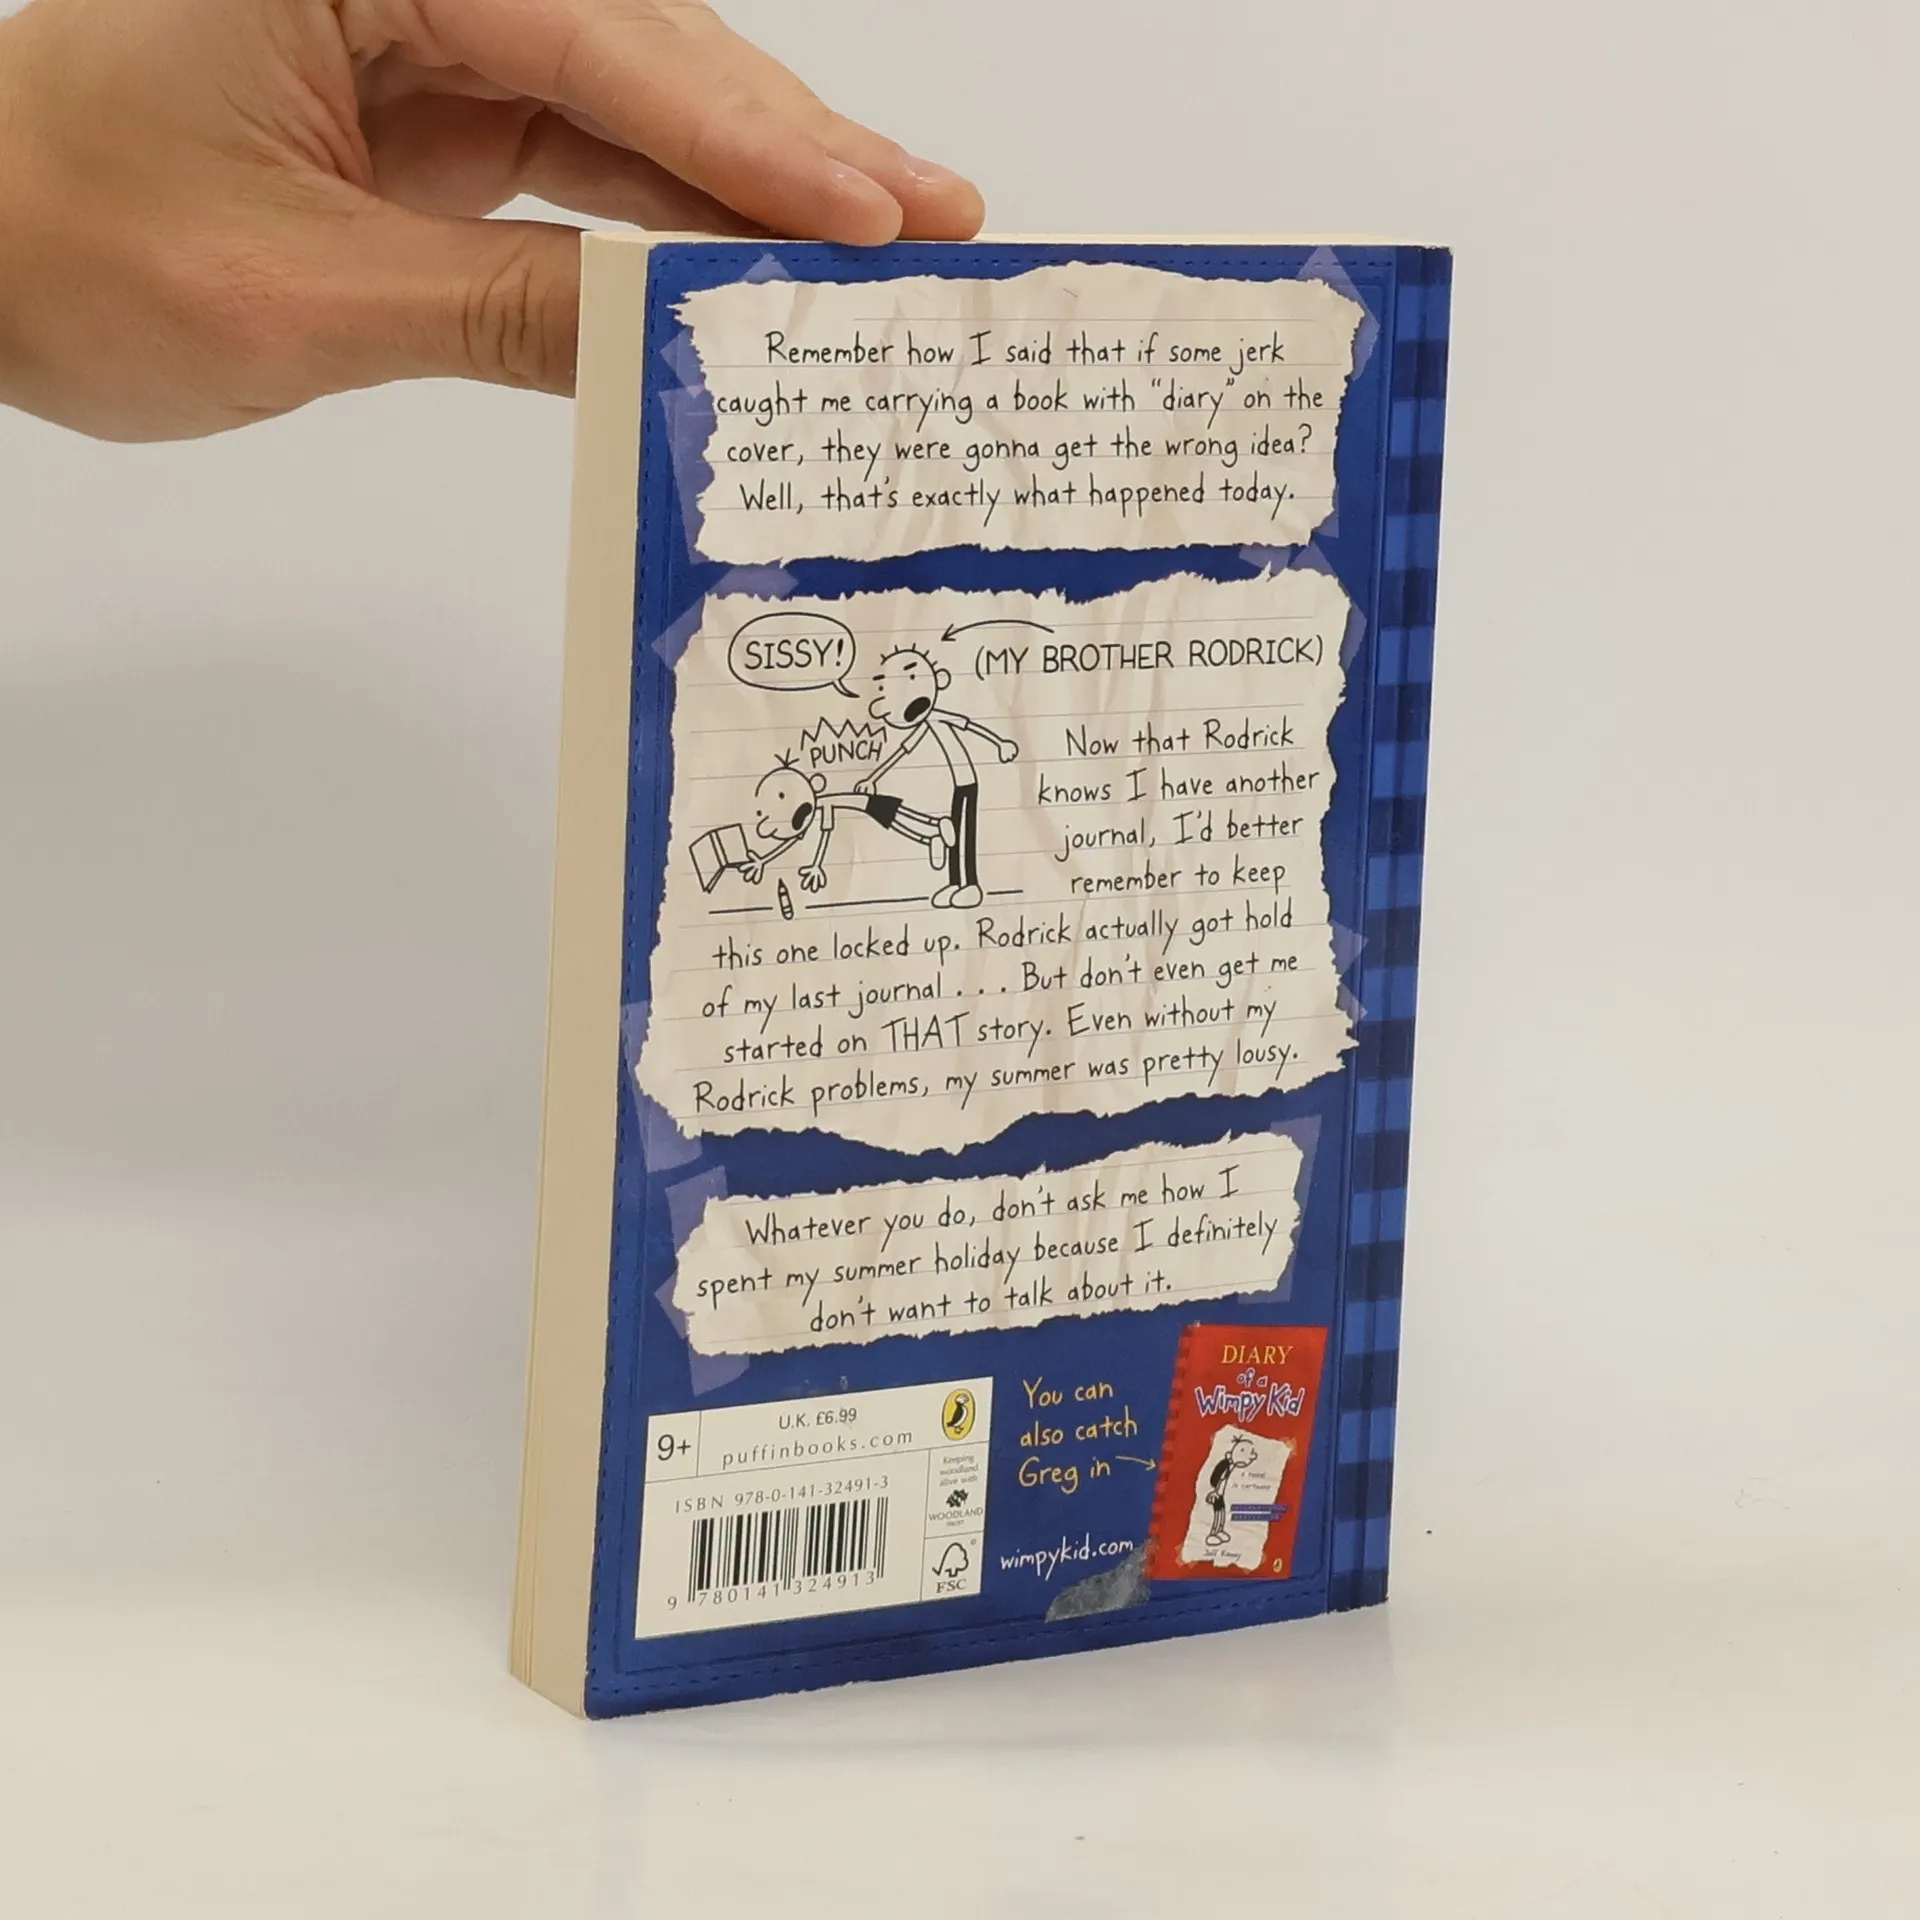 Remember how I said that if some jerk
caught me carrying a book with "diary" on the
cover, they were gonna get the wrong idea?
Well, that's exactly what happened today.
SISSY!
(MY BROTHER RODRICK)
PUNCH
Now that Rodrick
knows I have another
journal, I'd better
remember to keep
this one locked up. Rodrick actually got hold
of my last journal . . . But don't even get me
started on THAT story. Even without my
Rodrick problems, my summer was pretty lousy.
Whatever you do, don't ask me how I
spent my summer holiday because I definitely
don't want to talk about it.
9+
U.K. £6.99
puffinbooks.com
ISBN 978-0-141-32491-3
9 780141 324913
Keeping
woodland
alive with
WOODLAND
TRUST
FSC
You can
also catch
Greg in
wimpykid.com
DIARY
of a
Wimpy Kid
a novel
in cartoons
Jeff Kinney